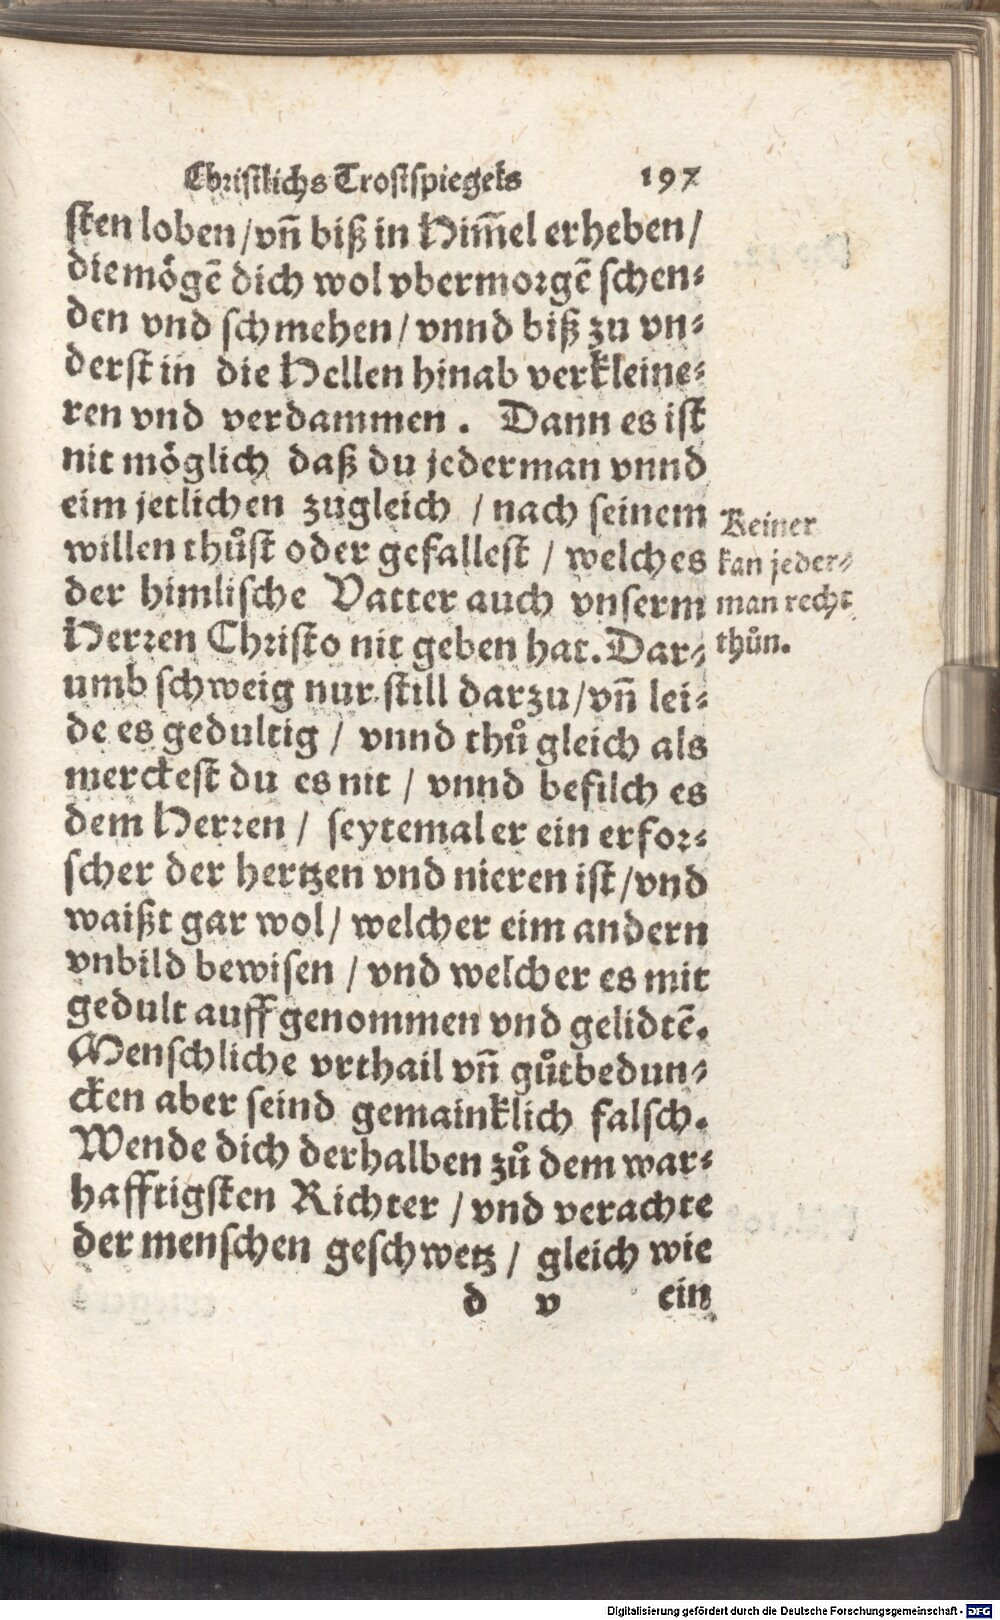 Christlichs Trostspiegels 197
sten loben / vn̄ biß in Him̄el erheben /
die mögē dich wol vbermorgē schen-
den vnd schmehen / vnnd biß zu vn-
derst in die Hellen hinab verkleine-
ren vnd verdammen . Dann es ist
nit möglich daß du jederman vnnd
eim jetlichen zugleich / nach seinem
willen thůst oder gefallest / welches
der himlische Vatter auch vnserm
Herren Christo nit geben hat. Dar-
umb schweig nur still darzu / vn̄ lei-
de es gedultig / vnnd thů gleich als
merckest du es nit / vnnd befilch es
dem Herren / seytemal er ein erfor-
scher der hertzen vnd nieren ist / vnd
waißt gar wol / welcher eim andern
vnbild bewisen / vnd welcher es mit
gedult auff genommen vnd gelidtē.
Menschliche vrthail vn̄ gůtbedun-
cken aber seind gemainklich falsch.
Wende dich derhalben zů dem war-
hafftigsten Richter / vnd verachte
der menschen geschwetz / gleich wie
d v ein
Keiner
kan jeder-
man recht
thůn.
Digitalisierung gefördert durch die Deutsche Forschungsgemeinschaft - DFG